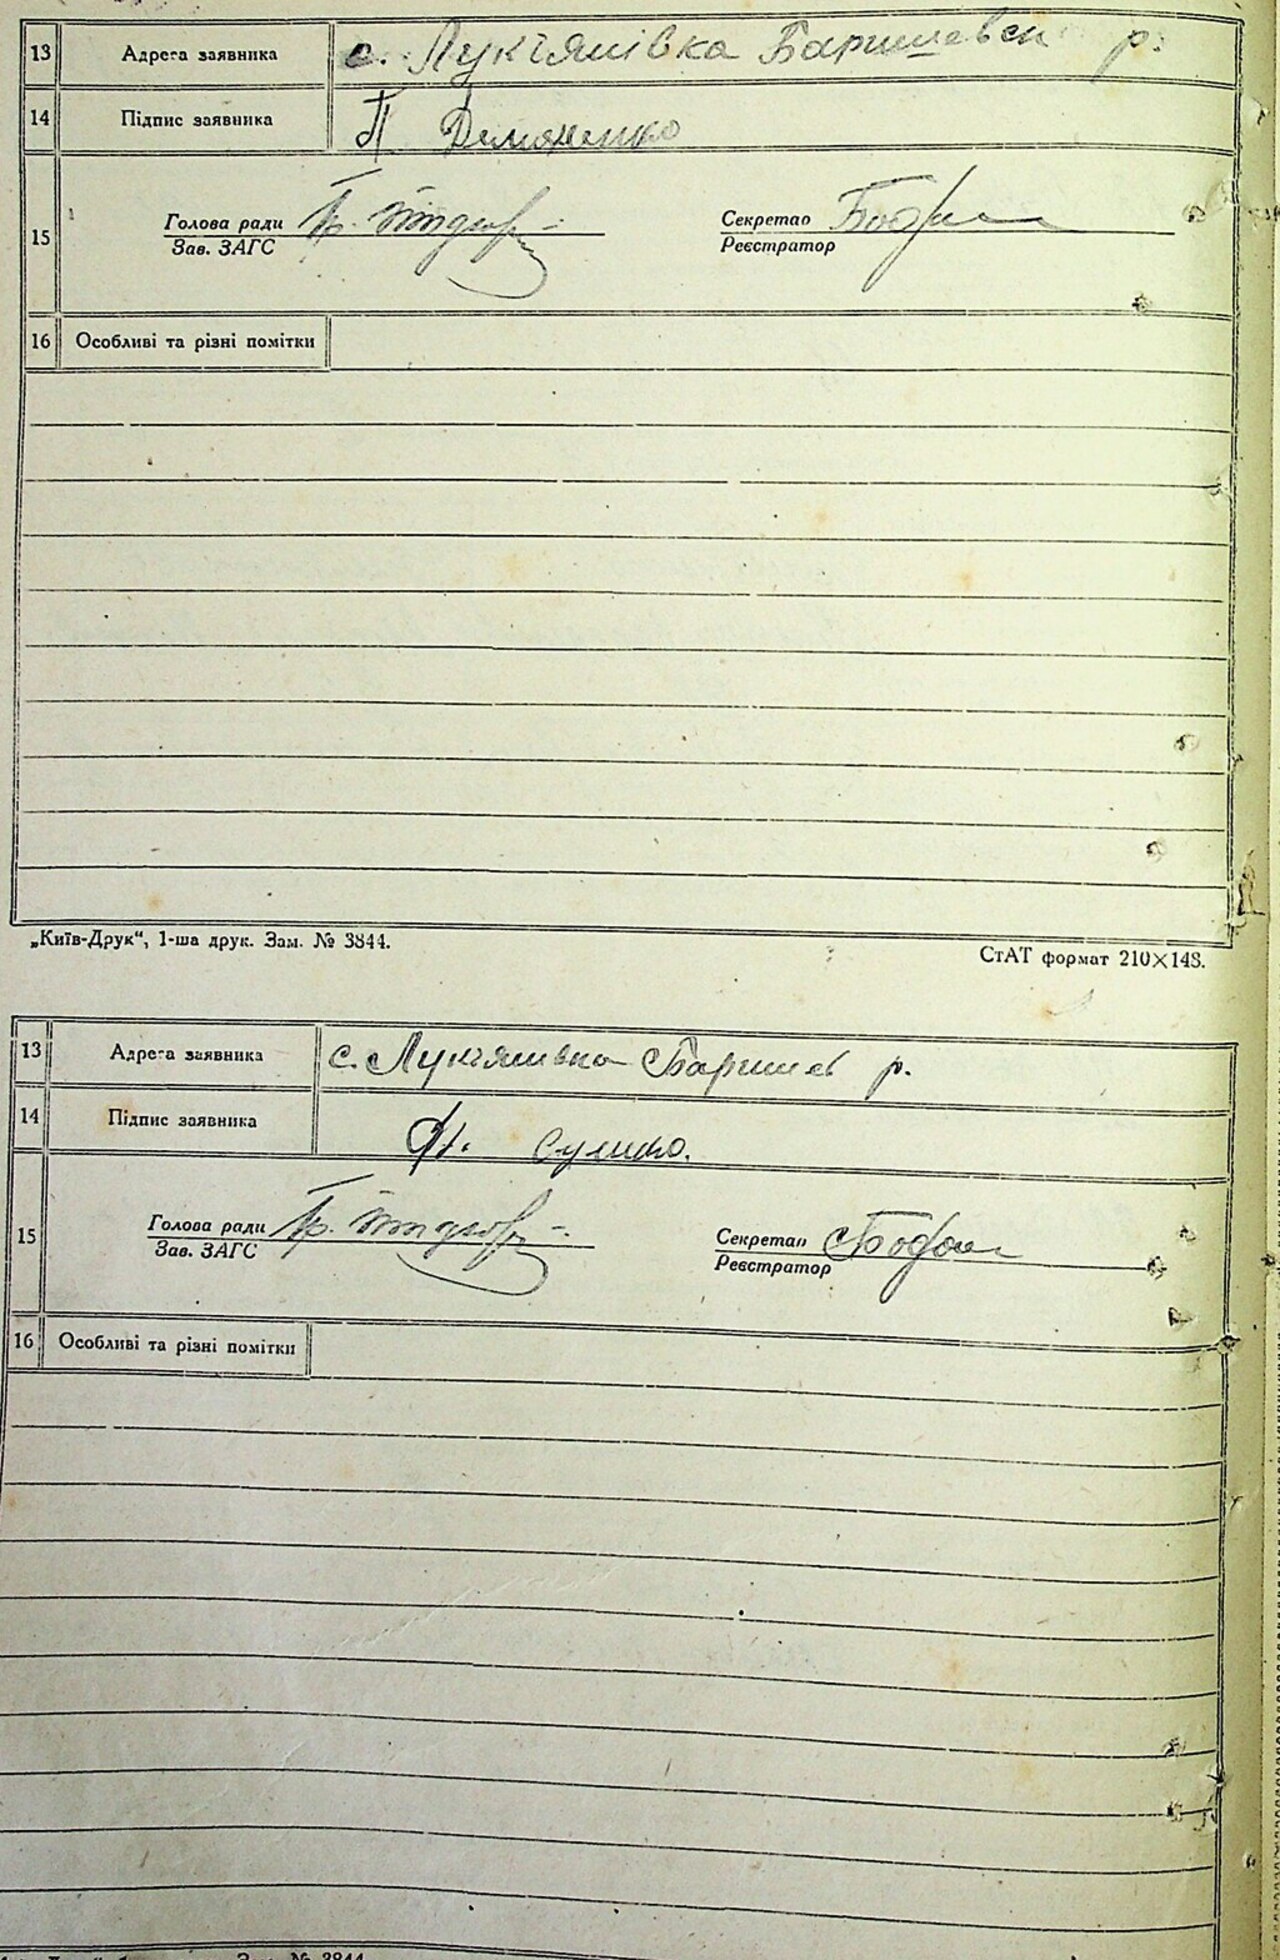 13 Адреса заявника с. Лук'янівка Баришевск р.
14 Підпис заявника П Демяненко
15 Голова ради Секретар
Зав. ЗАГС Реєстратор
16 Особливі та різні помітки
„Київ-Друк“, 1-ша друк. Зам. № 3844.
СтАТ формат 210×148.
13 Адреса заявника с. Лук'янівка Баришев р.
14 Підпис заявника
15 Голова ради Секретар
Зав. ЗАГС Реєстратор
16 Особливі та різні помітки
Зам. № 3844